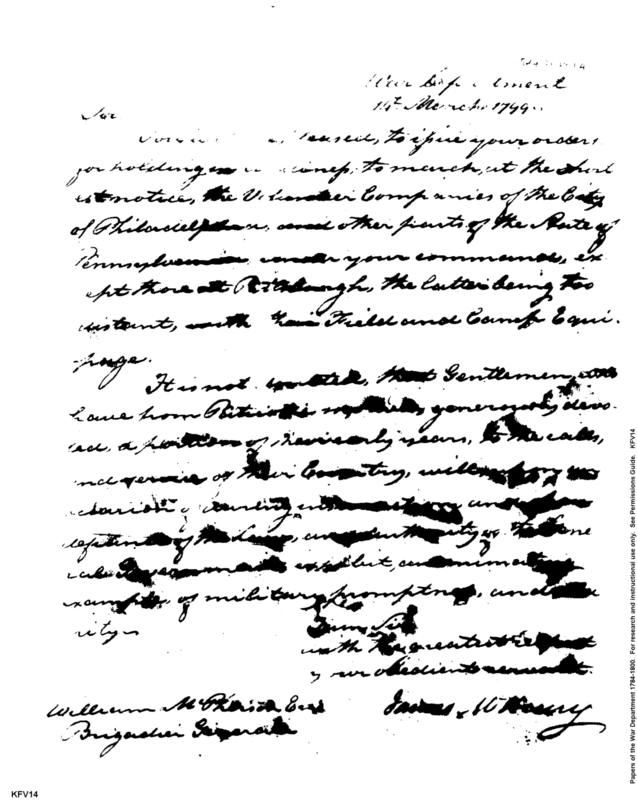 War Department
14th March 1799.
Sir
pleased, to issue your orders
for holding in to march, at the short
est notice, the Volunteer Companies of the City
of Philadelphia, and other parts of the State of
Pennsylvania under your command, ex
cept those at Pittsburgh, the latter being too
distant, with their Field and Camp Equi-
page.
It is not doubted, that Gentlemen, who
have from Patriotic motives, generously devo
ted, a portion of their early years, to the calls,
and service of their Country, will
occasion of and
defence of the Laws, and authority of the Gene
ral Government exhibit, an animating
example, of military promptness, and
rity
I am, Sir
with the greatest respect
your obedient servant.
James McHenry
William McPherson Esqr
Brigadier General
Papers of the War Department 1784-1800. For research and instructional use only. See Permissions Guide. KFV14
KFV14